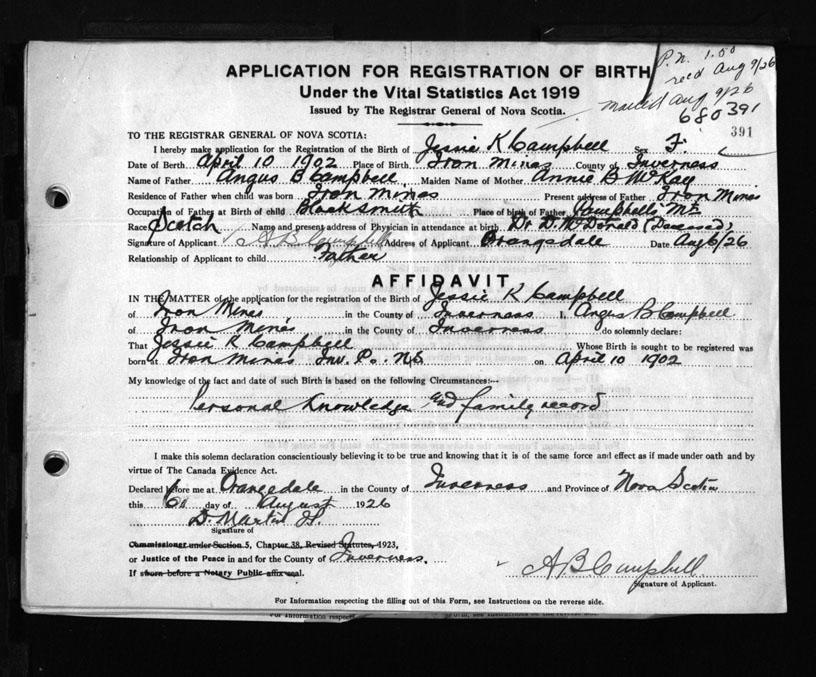 P.N. 1.50
recd Aug 9/26
mailed Aug 9/26
680391
391
APPLICATION FOR REGISTRATION OF BIRTH
Under the Vital Statistics Act 1919
Issued by The Registrar General of Nova Scotia.
TO THE REGISTRAR GENERAL OF NOVA SCOTIA:
I hereby make application for the Registration of the Birth of Jessie K Campbell Sex F.
Date of Birth April 10 1902 Place of Birth Iron Mines County of Inverness
Name of Father Angus B Campbell Maiden Name of Mother Annie B McKay
Residence of Father when child was born Iron Mines Present address of Father Iron Mines
Occupation of Father at Birth of child Blacksmith Place of birth of Father Campbells Mt
Race Scotch Name and present address of Physician in attendance at birth Dr D. McDonald (Deceased)
Signature of Applicant A B Campbell Address of Applicant Orangedale Date Aug 6/26
Relationship of Applicant to child Father
AFFIDAVIT
IN THE MATTER of the application for the registration of the Birth of Jessie K Campbell
of Iron Mines in the County of Inverness I, Angus B Campbell
of Iron Mines in the County of Inverness do solemnly declare:
That Jessie K Campbell Whose Birth is sought to be registered was
born at Iron Mines Inv. Co. N.S. on April 10 1902
My knowledge of the fact and date of such Birth is based on the following Circumstances:—
Personal Knowledge and family record
I make this solemn declaration conscientiously believing it to be true and knowing that it is of the same force and effect as if made under oath and by
virtue of The Canada Evidence Act.
Declared before me at Orangedale in the County of Inverness and Province of Nova Scotia
this 6th day of August 1926
D. Martin
Signature of
Commissioner under Section 5, Chapter 38, Revised Statutes, 1923,
or Justice of the Peace in and for the County of Inverness.
If sworn before a Notary Public affix seal.
A B Campbell
Signature of Applicant.
For Information respecting the filling out of this Form, see Instructions on the reverse side.
For Information respecting the filling out of this Form, see Instructions on the reverse side.